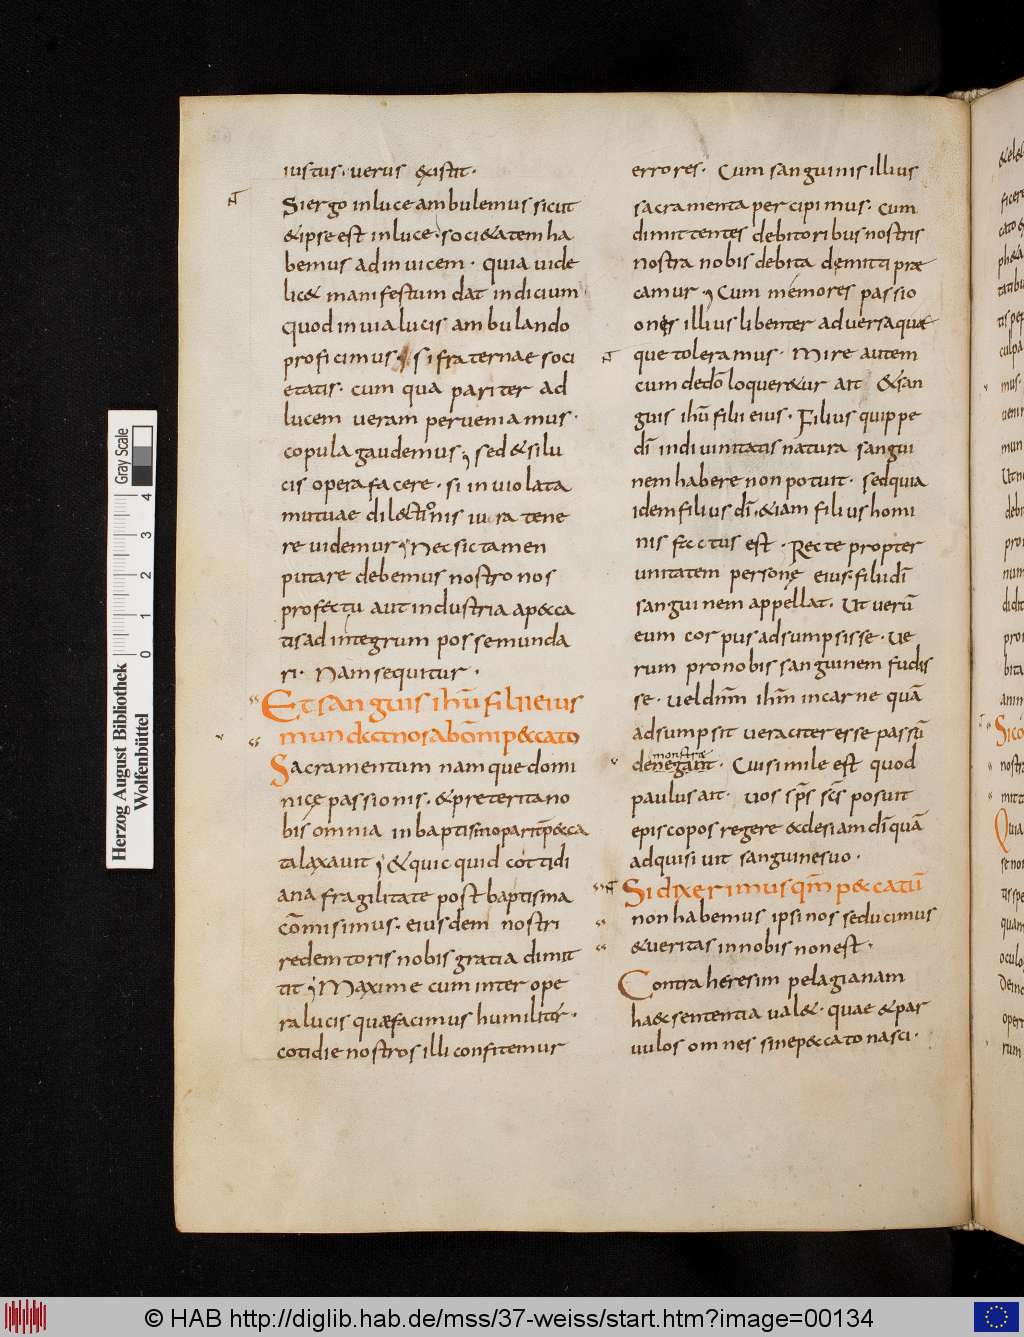 iustus. uerus existit.
Si ergo in luce ambulemus sicut
& ipse est in luce. soci&atem ha
bemus ad inuicem. quia uide
lic& manifestum dat indicium
quod in uia lucis ambulando
proficimus. si fraternae soci
etatis. cum qua pariter ad
lucem ueram peruenia mus.
copula gaudemus; sed & si lu
cis opera facere. si inuiolata
mutuae dil&tionis iura tene
re uidemur; Nec sic tamen
putare debemus nostro nos
prof&tu aut industria a p&ca
tis ad integrum posse munda
ri. Nam sequitur.
Et sanguis ihũ filii eius
mundat nos ab oṁi p&cato
Sacramentum namque domi
nicę passionis. & preterita no
bis omnia in baptismo pariter p&ca
ta laxauit; & quicquid cottidi
ana fragilitate post baptisma
cōmisimus. eiusdem nostri
redemtoris nobis gratia dimit
tit; Maxime cum inter ope
ra lucis quæ facimus humiliter.
cotidie nostros illi confitemur
errores. Cum sanguinis illius
sacramenta percipimus. cum
dimittentes debitoribus nostris
nostra nobis debita demitti præ
camur; Cum memores passio
onis illius libenter aduersa quæ
que toleramus. Mire autem
cum de dō loquer&ur ait & san
guis ihū filii eius. Filius quippe
dī in diuinitatis natura sangui
nem habere non potuit. sed quia
idem filius dī. &iam filius homi
nis factus est. Recte propter
unitatem personę eius. filii dī
sanguinem appellat. Ut uerū
eum corpus adsumpsisse. ue
rum pro nobis sanguinem fudis
se. uel dnm̄ ihm̄ in carne quā
adsumpsit ueraciter esse passū
monstra
denegant. Cui simile est quod
paulus ait. uos sps̄ scs̄ posuit
episcopos regere &clesiam dī quā
adquisiuit sanguine suo.
Si dixerimus qm̄ p&catū
non habemus ipsi nos seducimus
& ueritas in nobis non est.
Contra heresim pelagianam
haec sententia ual&. quae & par
uulos omnes sine p&cato nasci.
Herzog August Bibliothek
Wolfenbüttel
0 1 2 3 4
Gray Scale
© HAB http://diglib.hab.de/mss/37-weiss/start.htm?image=00134